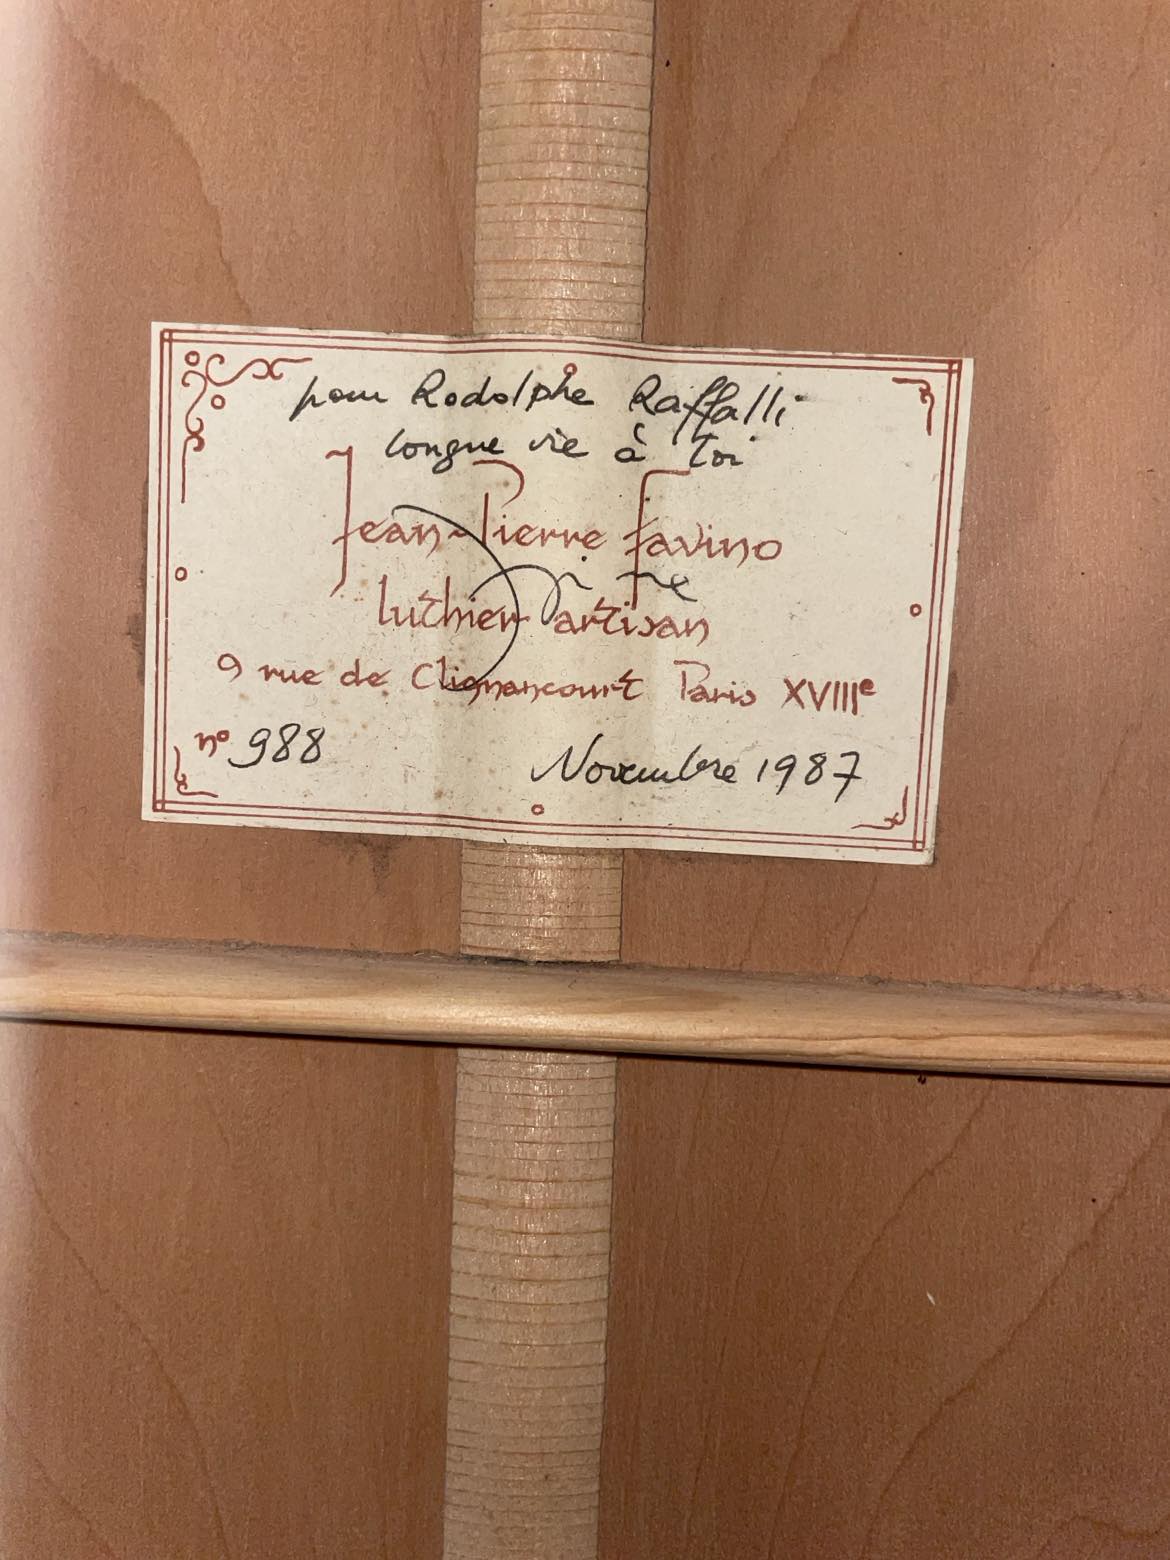 pour Rodolphe Raffalli
longue vie à toi
Jean-Pierre Favino
luthier artisan
9 rue de Clignancourt Paris XVIIIe
no 988 Novembre 1987